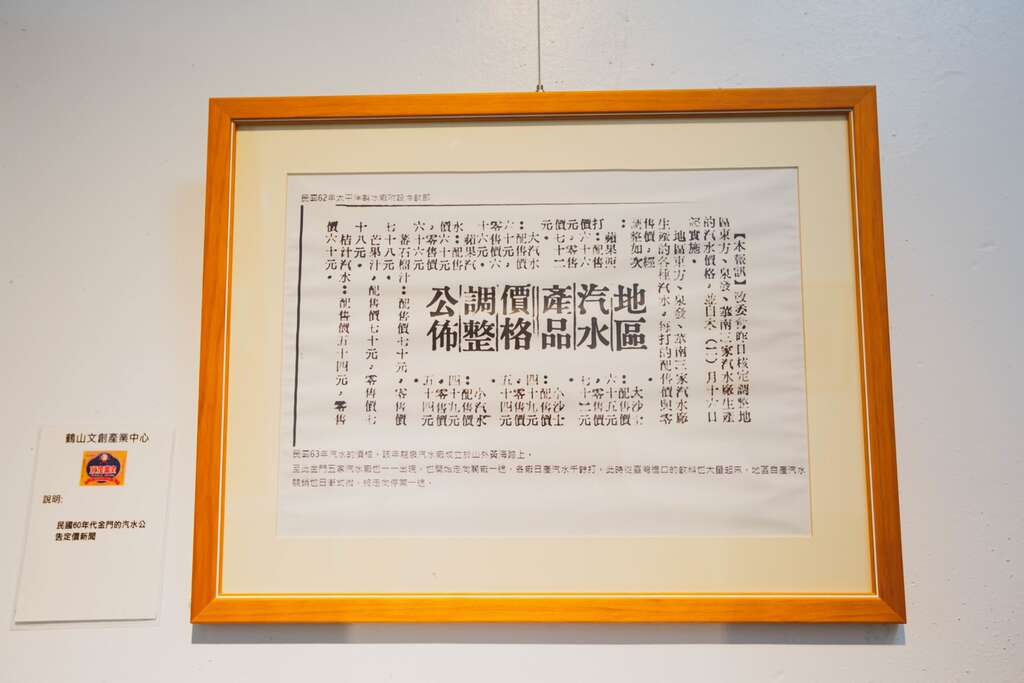 民國62年太平洋製冰廠附設冷飲部
【本報訊】政委會昨日核定調整地
區東方、泉發、莘南三家汽水廠生產
的汽水價格,並自本(二)月十六日
起實施。
地區東方、泉發、莘南三家汽水廠
生產的各種汽水,每打的配售價與零
售價,經
調整如次
:
地區
汽水
產品
價格
調整
公佈
蘋果西
打:配售
價六十六
元
價七十二
元。
大汽水
:配售價
六十六元
,零售價
蘋果汽
水:配售
大沙士
:配售價
六十五元
,零售價
七十二元
。
小沙士
:配售價
四十九元
,零售價
五十四元
。
小汽水
:配售價
四十九元
,零售價
五十四元
。
蕃石榴汁:配售價七十元,零售價
七十八元。
芒果汁,配售價七十元,零售價七
十八元。
桔汁汽水:配售價五十四元,零售
價六十元。
民國63年汽水的價格,該年龍泉汽水廠成立於山外黃海路上。
至此金門五家汽水廠也一一出現,也開始走向關廠一途,各廠日產汽水千餘打,此時從臺灣進口的飲料也大量起來,地區自產汽水
競銷也日漸式微,終走向停業一途。
鶴山文創產業中心
說明:
民國60年代金門的汽水公
告定價新聞